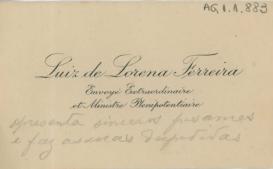 AG.1.1.889
Luiz de Lorena Ferreira
Envoyé Extraordinaire
et Ministre Plenipotentiaire
apresenta sinceros pesames
e faz as suas despedidas